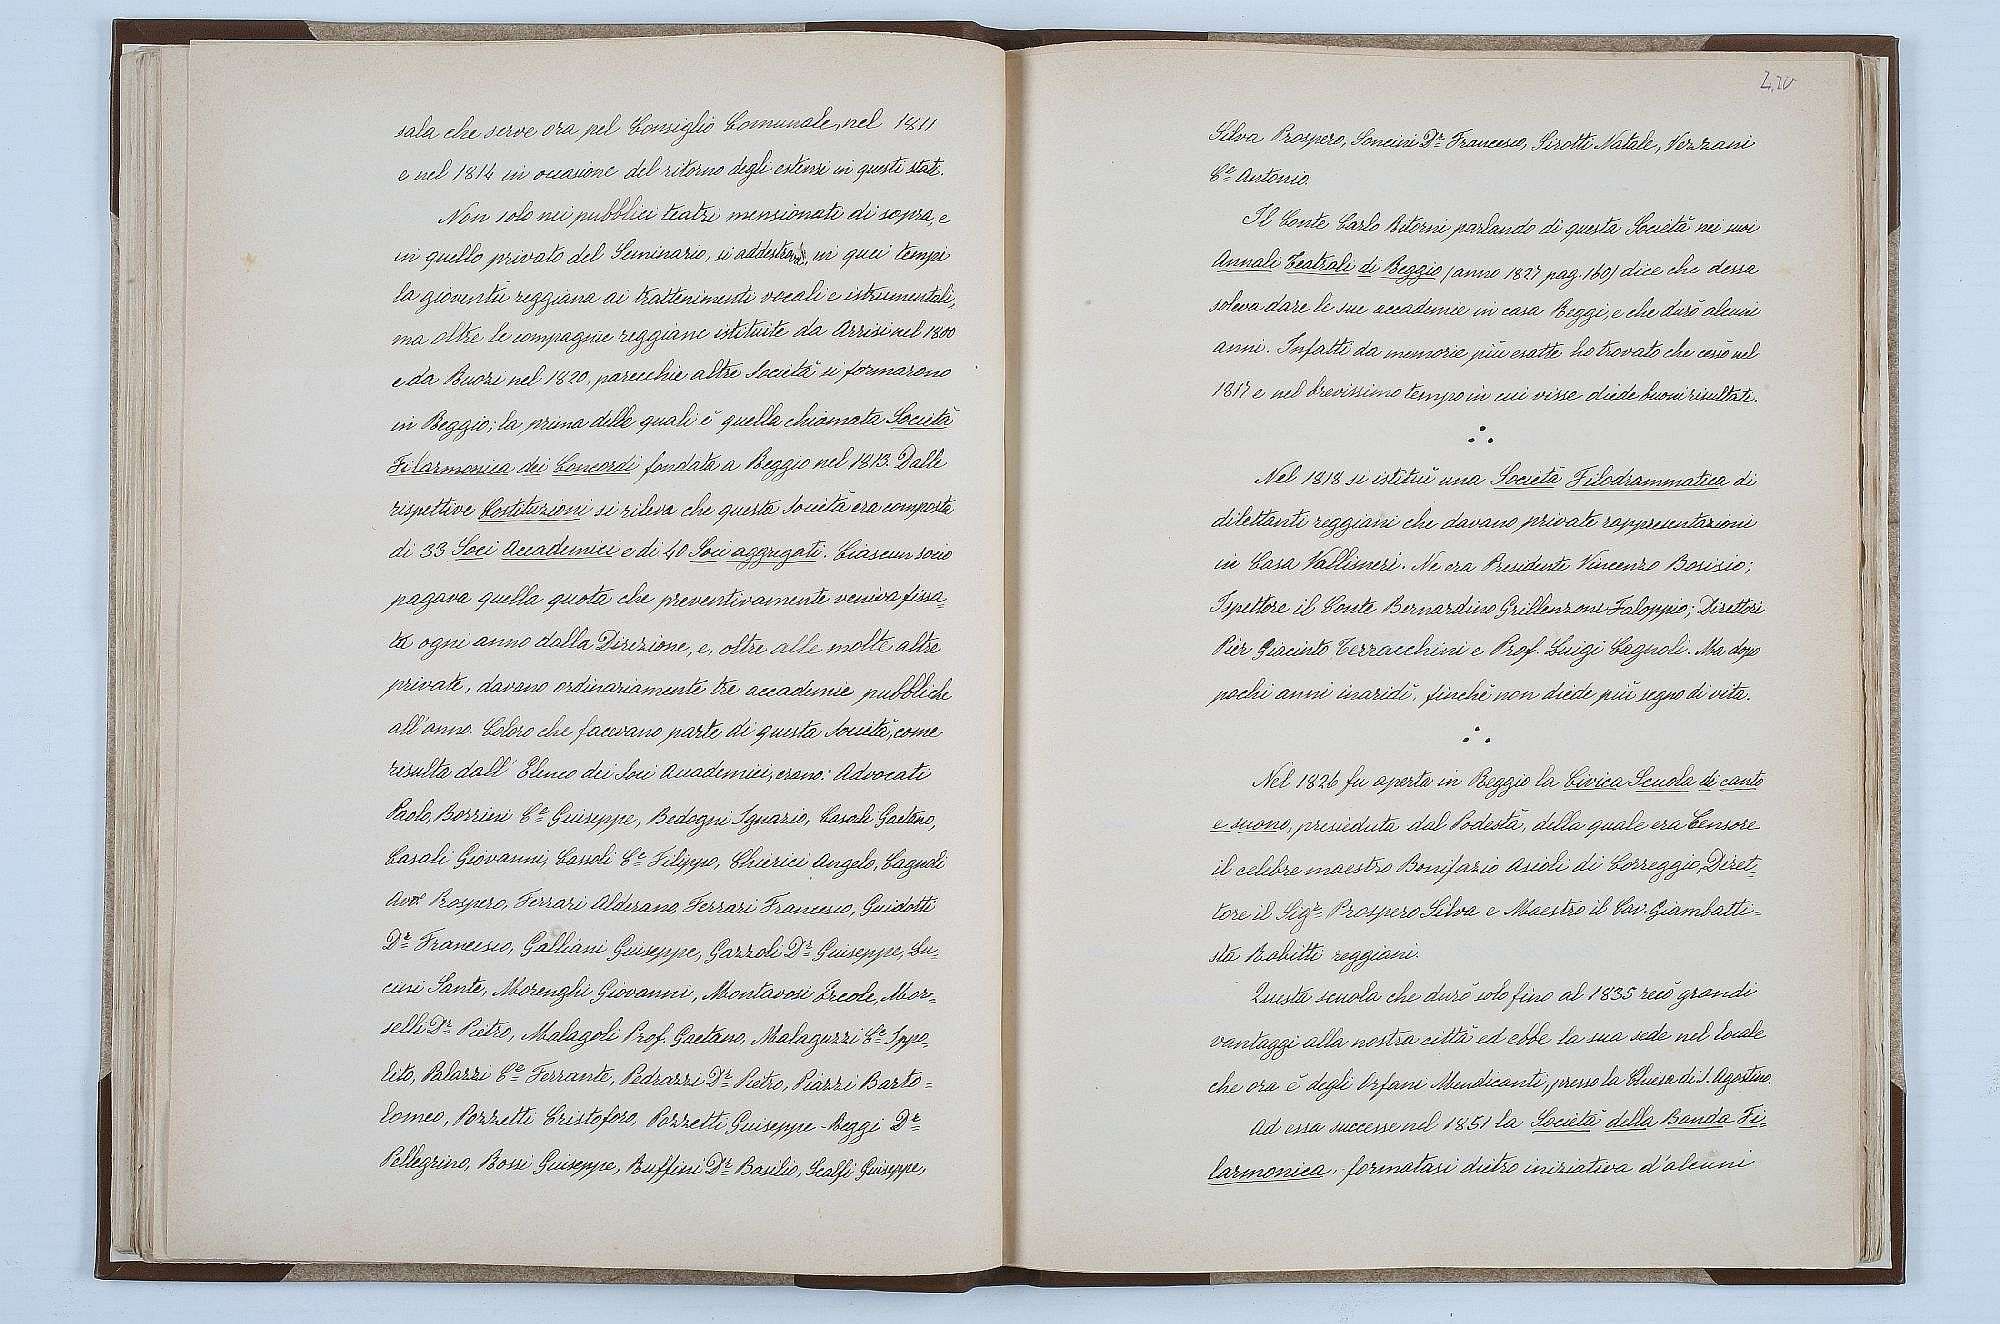 sala che serve ora pel Consiglio Comunale, nel 1811
e nel 1814 in occasione del ritorno degli estensi in questi stati.
Non solo nei pubblici teatri mensionati di sopra, e
in quello privato del Seminario, si addestrava in quei tempi
la gioventù reggiana ai trattenimenti vocali e istrumentali,
ma oltre le compagnie reggiane istituite da Arrisi nel 1800
e da Buori nel 1820, parecchie altre Società si formarono
in Reggio; la prima delle quali è quella chiamata Società
Filarmonica dei Concordi fondata a Reggio nel 1813. Dalle
rispettive Costituzioni si rileva che questa Società era composta
di 33 Soci Accademici e di 40 Soci aggregati. Ciascun socio
pagava quella quota che preventivamente veniva fissa-
ta ogni anno dalla Direzione, e, oltre alle molte altre
private, davano ordinariamente tre accademie pubbliche
all'anno. Coloro che facevano parte di questa Società, come
risulta dall' Elenco dei Soci Accademici, erano: Advocati
Paolo, Borrini Ce Giuseppe, Bedogni Ignazio, Casali Gaetano,
Casali Giovanni, Cassoli Ce Filippo, Chierici Angelo, Cagnoli
Avv. Prospero, Ferrari Alderano, Ferrari Francesco, Guidotti
Dr Francesco, Galliani Giuseppe, Gazzoli Dr Giuseppe, Lu-
cini Sante, Morenghi Giovanni, Montavosi Ercole, Mor-
selli Dr Pietro, Malagoli Prof. Gaetano, Malaguzzi Ce Ippo-
lito, Palazzi Ce Ferrante, Pedrazzi Dr Pietro, Piazzi Barto-
lomeo, Pozzetti Cristoforo, Pozzetti Giuseppe - Reggi Dr
Pellegrino, Rossi Giuseppe, Ruffini Dr Basilio, Scalfi Giuseppe,
Silva Prospero, Soncini Dr Francesco, Sirotti Natale, Vezzani
Ce Antonio.
Il Conte Carlo Ritorni parlando di questa Società nei suoi
Annali Teatrali di Reggio (anno 1827 pag. 160) dice che dessa
soleva dare le sue accademie in casa Reggi, e che durò alcuni
anni. Infatti da memorie più esatte ho trovato che cessò nel
1817 e nel brevissimo tempo in cui visse diede buoni risultati.
Nel 1818 si istituì una Società Filodrammatica di
dilettanti reggiani che davano private rappresentazioni
in Casa Vallisneri. Ne era Presidente Vincenzo Bosisio;
Ispettore il Conte Bernardino Grillenzoni Faloppio; Direttori
Pier Giacinto Terracchini e Prof. Luigi Cagnoli. Ma dopo
pochi anni inaridì, finchè non diede più segno di vita.
Nel 1826 fu aperta in Reggio la Civica Scuola di canto
e suono, presieduta dal Podestà, della quale era Censore
il celebre maestro Bonifazio Asioli di Correggio, Diret-
tore il Sigr Prospero Silva e Maestro il Cav. Giambatti-
sta Rabitti reggiani.
Questa scuola che durò solo fino al 1835 recò grandi
vantaggi alla nostra città ed ebbe la sua sede nel locale
che ora è degli Orfani Mendicanti, presso la Chiesa di S. Agostino.
Ad essa successe nel 1851 la Società della Banda Fi-
larmonica, formatasi dietro iniziativa d'alcuni